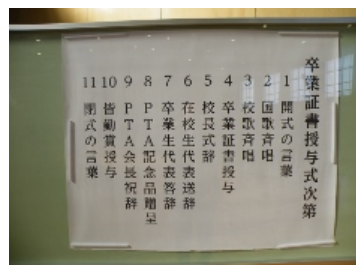 卒業証書授与式次第
1 開式の言葉
2 国歌斉唱
3 校歌斉唱
4 卒業証書授与
5 校長式辞
6 在校生代表送辞
7 卒業生代表答辞
8 PTA記念品贈呈
9 PTA会長祝辞
10 皆勤賞授与
11 閉式の言葉